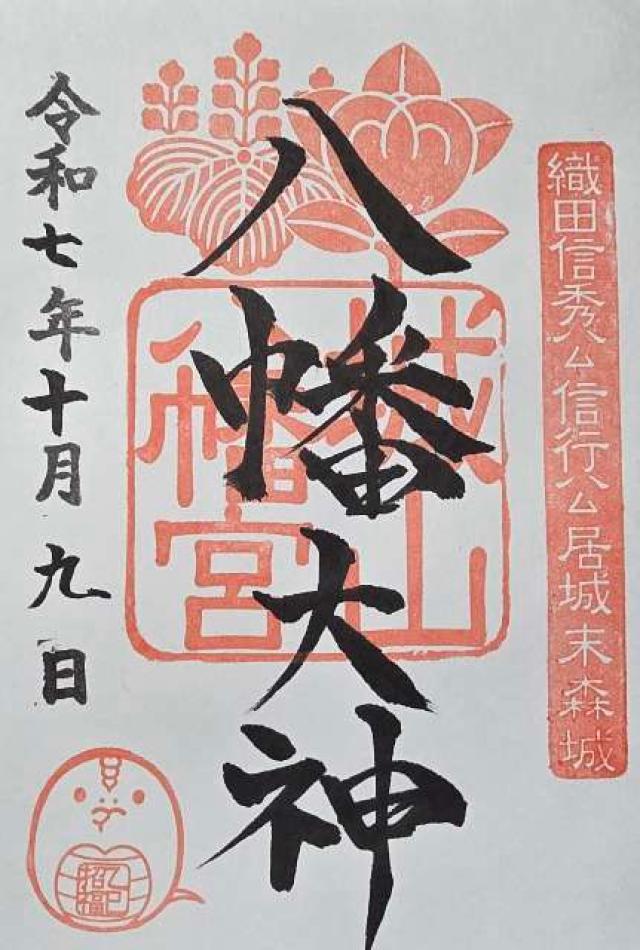 織田信秀公信行公居城末森城
八幡大神
城山
八幡宮
令和七年十月九日
乙巳
招福